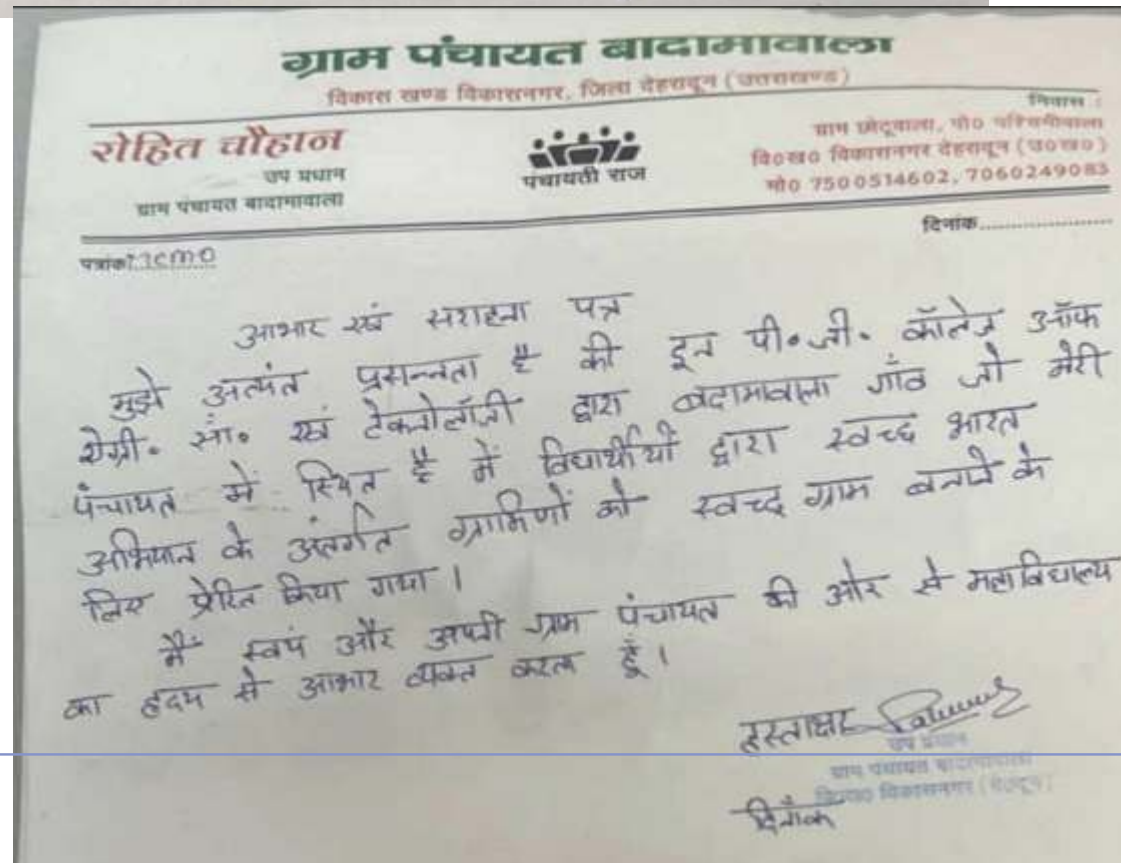 ग्राम पंचायत बादामावाला
विकास खण्ड विकासनगर, जिला देहरादून (उत्तराखण्ड)
रोहित चौहान
उप प्रधान
ग्राम पंचायत बादामावाला
पंचायती राज
निवास :
ग्राम छोटूवाला, पो०
वि०ख० विकासनगर देहरादून (उ०ख०)
मो० 7500514602, 7060249083
पत्रांक
दिनांक
आभार एवं सराहना पत्र
मुझे अत्यंत प्रसन्नता है की इन पी॰जी॰ कॉलेज ऑफ
सां॰ एवं टेक्नोलॉजी द्वारा बदामावाला गाँव जो मेरी
पंचायत में स्थित है में विधार्थीयों द्वारा स्वच्छ भारत
अभियान के अंतर्गत ग्रामिणों को स्वच्छ ग्राम बनाने के
लिए प्रेरित किया गया।
मैं स्वयं और अपनी ग्राम पंचायत की ओर से महाविधालय
का हृदय से आभार व्यक्त करता हूँ।
हस्ताक्षर
उप प्रधान
ग्राम पंचायत बादामावाला
वि०ख० विकासनगर (दे०दून)
दिनाँक